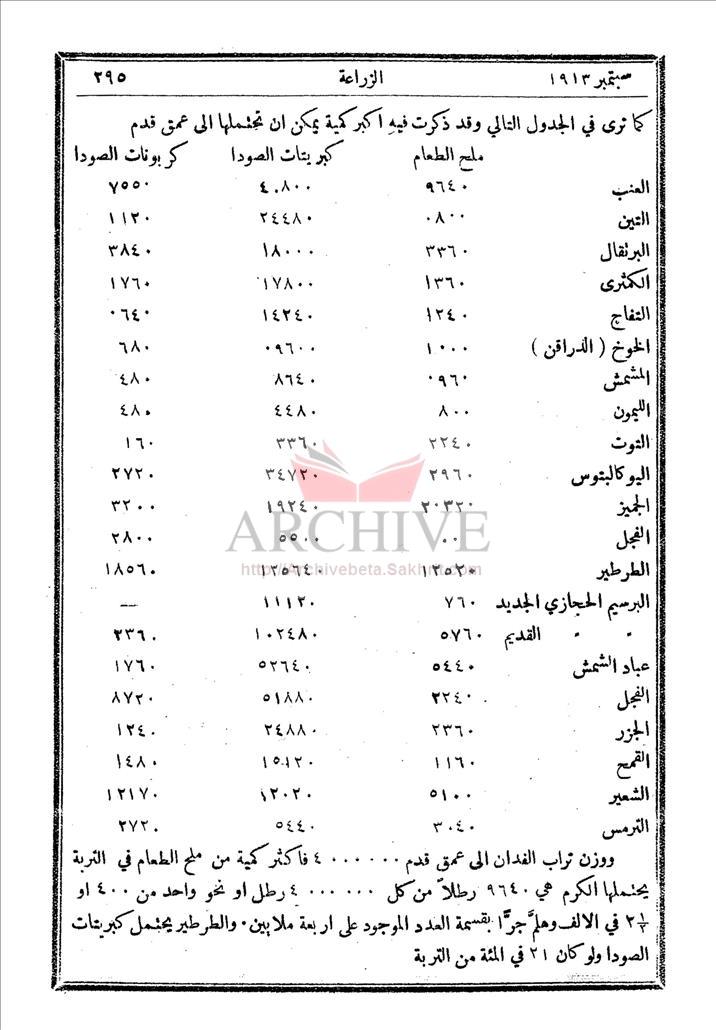 سبتمبر ١٩١٣ الزراعة ٢٩٥
كما ترى في الجدول التالي وقد ذكرت فيهِ اكبر كمية يمكن ان تحتملها الى عمق قدم
ملح الطعام كبريتات الصودا كربونات الصودا
العنب ٩٦٤٠ ٤٠٨٠٠ ٧٥٥٠
التين ٠٨٠٠ ٢٤٤٨٠ ١١٢٠
البرتقال ٣٣٦٠ ١٨٠٠٠ ٣٨٤٠
الكمثرى ١٣٦٠ ١٧٨٠٠ ١٧٦٠
التفاح ١٢٤٠ ١٤٢٤٠ ٠٦٤٠
الخوخ ( الدراقن ) ١٠٠٠ ٠٩٦٠٠ ٦٨٠
المشمش ٠٩٦٠ ٨٦٤٠ ٤٨٠
الليمون ٨٠٠ ٤٤٨٠ ٤٨٠
التوت ٢٢٤٠ ٣٣٦٠ ١٦٠
اليوكالبتوس ٢٩٦٠ ٣٤٧٢٠ ٢٧٢٠
الجميز ٢٠٣٢٠ ١٩٢٤٠ ٣٢٠٠
ARCHIVE
الفجل ٠٠ ٥٥٠٠ ٢٨٠٠
http://Archivebeta.Sakhrit.com
الطرطير ١٢٥٢٠ ١٢٥٦٤٠ ١٨٥٦٠
البرسيم الحجازي الجديد ٧٦٠ ١١١٢٠ —
" " القديم ٥٧٦٠ ١٠٢٤٨٠ ٢٣٦٠
عباد الشمش ٥٤٤٠ ٥٢٦٤٠ ١٧٦٠
الفجل ٢٢٤٠ ٥١٨٨٠ ٨٧٢٠
الجزر ٢٣٦٠ ٢٤٨٨٠ ١٢٤٠
القمح ١١٦٠ ١٥١٢٠ ١٤٨٠
الشعير ٥١٠٠ ١٢٠٢٠ ١٢١٧٠
الترمس ٣٠٤٠ ٥٤٤٠ ٢٧٢٠
ووزن تراب الفدان الى عمق قدم ٤٠٠٠٠٠٠ فاكثر كمية من ملح الطعام في التربة
يحتملها الكرم هي ٩٦٤٠ رطلاً من كل ٤٠٠٠٠٠٠ رطل او نحو واحد من ٤٠٠ او
٢½ في الالف وهلمَّ جرًّا بقسمة العدد الموجود على اربعة ملايين٠ والطرطير يحتمل كبريتات
الصودا ولو كان ٢١ في المئة من التربة